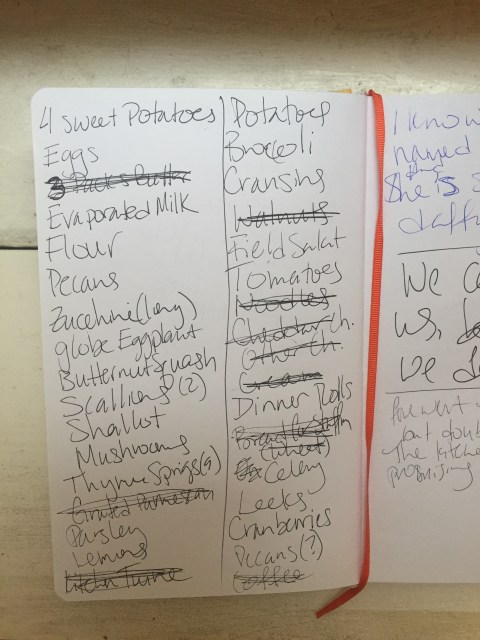 4 sweet Potatoes
Eggs
3 Packs Butter
Evaporated Milk
Flour
Pecans
Zucchini (long)
globe Eggplant
Butternut squash
Scallions (2)
Shallot
Mushrooms
Thyme Sprigs (9)
Grated Parmesan
Parsley
Lemons
Kitchen Twine
Potatoes
Broccoli
Cransins
Walnuts
Field Salat
Tomatoes
Noodles
Cheddar Ch.
Other Ch.
Cream
Dinner Rolls
Bread for Stuffin
(wheat)
Celery
Leeks
Cranberries
Pecans (?)
Coffee
I know
named
She's
daff
We
us,
we
but doub
the kitche
promising